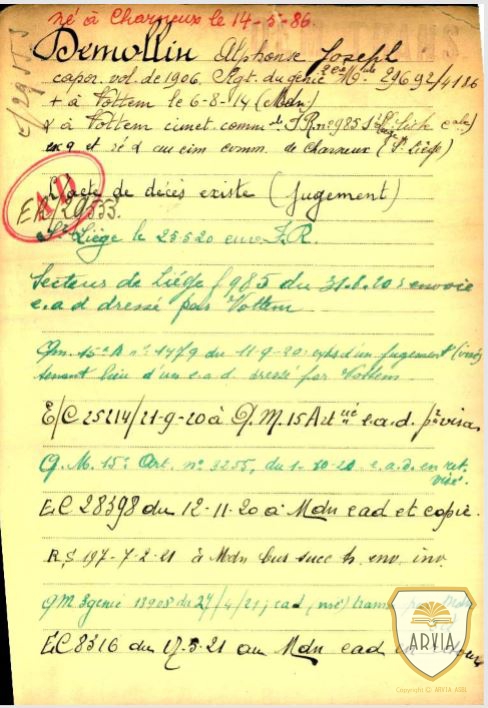 né à Charneux le 14-5-86.
Demollin Alphonse Joseph
capor. vol. de 1906 Rgt. du génie Mle 29692/4186
+ à Vottem le 6-8-14 (Mdn)
à Vottem cimet. comm. I.R. n° 985
ex9 et ré au cim comm. de Charneux (Pr. Liège)
L'acte de décès existe (jugement)
AD
E/29553.
Liège le 25520 env I.R.
Secteur de Liége 985 du envoie
e.a.d dressé par Vottem
Qm. 15e A n° 1479 du 11-9-20: d'un jugement (visé)
tenant lieu d'un e.a.d. dressé par Vottem
E/C 25214/21-9-20 à Q.M. 15 Art e.a.d. pr visa
Q.M. 15e Art. n° 3255, du 1-10-20 e.a.d. en ret.
visé.
E.C 28398 du 12-11-20 à Mdn ead et copie.
R.S 197-7-2-21 à Mdn succ env. inv.
QM 3 genie 18908 du 27/4/21; ead, (visé) Mdn
E.C 8316 du 17-5-21 au Mdn ead en retour
ARVIA
Copyright © ARVIA ASBL